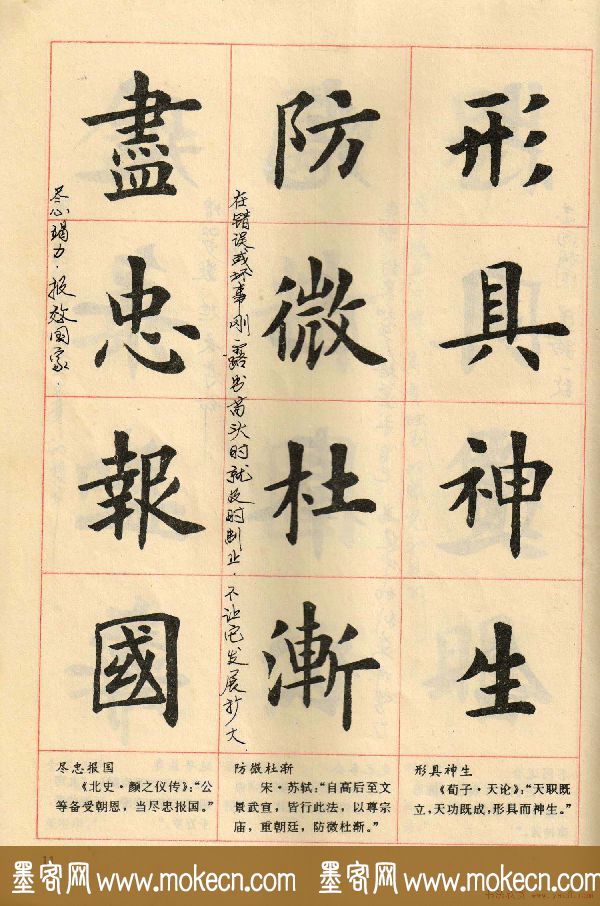 形具神生
防微杜漸
在错误或坏事刚露出苗头时就及时制止．不让它发展扩大．
盡忠報國
尽心竭力．报效国家．
形具神生
《荀子·天论》：“天职既
立，天功既成，形具而神生。”
防微杜渐
宋·苏轼：“自高后至文
景武宣，皆行此法，以尊宗
庙，重朝廷，防微杜渐。”
尽忠报国
《北史·颜之仪传》：“公
等备受朝恩，当尽忠报国。”
墨客网 www.mokecn.com 墨客网 www.mokecn.com